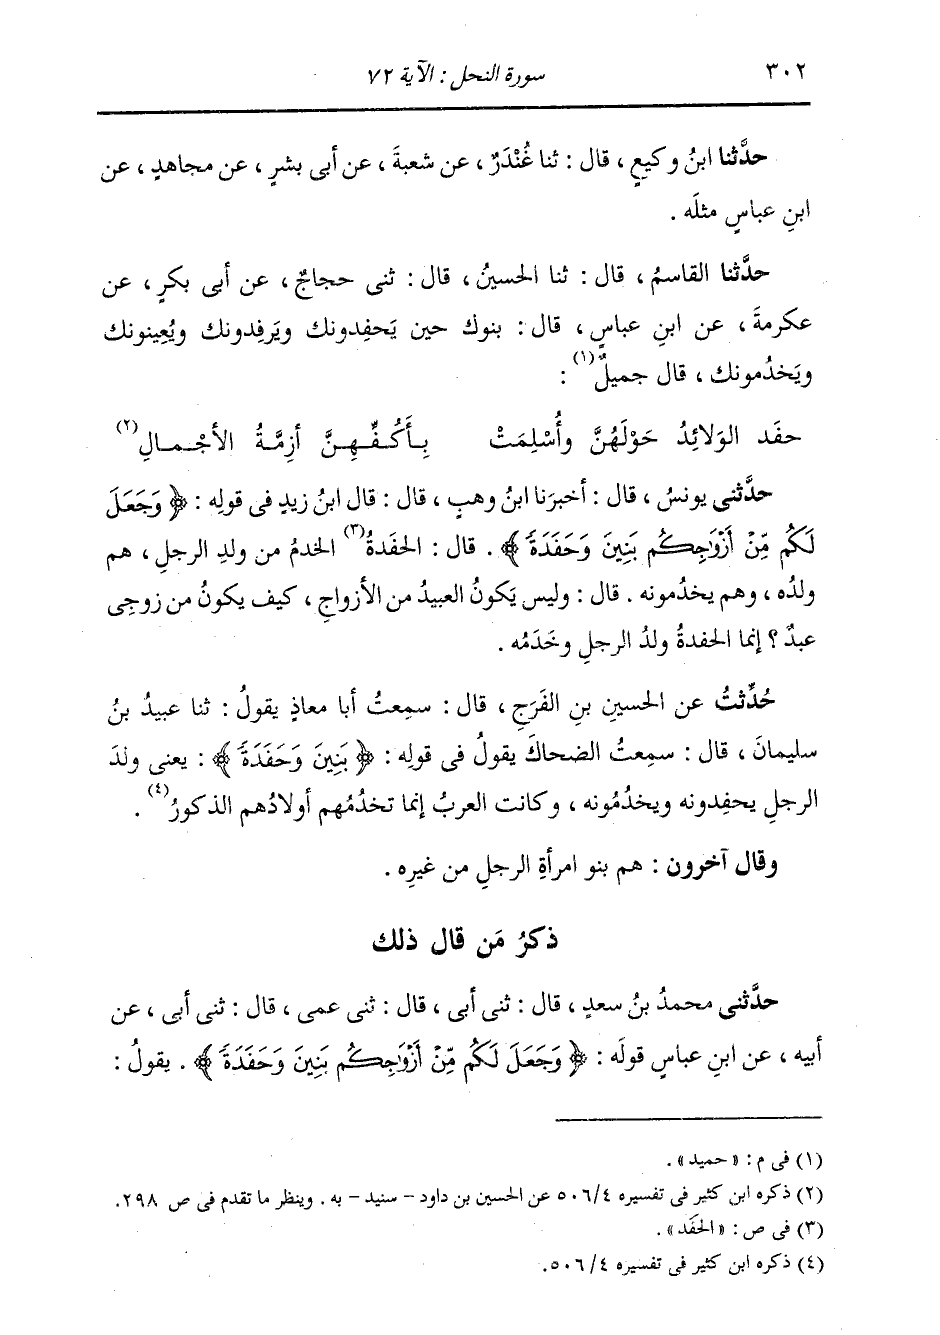 ٣٠٢
سورة النحل : الآية ٧٢
حدَّثنا ابنُ وكيعٍ ، قال : ثنا غُنْدَرٌ ، عن شعبةَ ، عن أبى بشرٍ ، عن مجاهدٍ ، عن
ابنِ عباسٍ مثلَه .
حدَّثنا القاسمُ ، قال : ثنا الحسينُ ، قال : ثنى حجاجٌ ، عن أبى بكرٍ ، عن
عكرمةَ ، عن ابنِ عباسٍ ، قال : بنوك حين يَحفِدونك ويَرفِدونك ويُعِينونك
ويَخدُمونك ، قال جميلٌ(١) :
حفَد الوَلائِدُ حَوْلَهُنَّ وأُسْلِمَتْ بِأَكُفِّهِنَّ أَزِمَّةُ الأجْمالِ(٢)
حدَّثنى يونسُ ، قال : أخبرَنا ابنُ وهبٍ ، قال : قال ابنُ زيدٍ فى قولِه : ﴿ وَجَعَلَ
لَكُم مِّنْ أَزْوَٰجِكُم بَنِينَ وَحَفَدَةً ﴾ . قال : الحفَدةُ(٣) الخدمُ من ولدِ الرجلِ ، هم
ولدُه ، وهم يخدُمونه . قال : وليس يَكونُ العبيدُ من الأزواجِ ، كيف يكونُ من زوجِى
عبدٌ ؟ إنما الحفدةُ ولدُ الرجلِ وخَدَمُه .
حُدِّثتُ عن الحسينِ بنِ الفَرَجِ ، قال : سمِعتُ أبا معاذٍ يقولُ : ثنا عبيدُ بنُ
سليمانَ ، قال : سمِعتُ الضحاكَ يقولُ فى قولِه : ﴿ بَنِينَ وَحَفَدَةً ﴾ : يعنى ولدَ
الرجلِ يحفِدونه ويخدُمُونه ، وكانت العربُ إنما تخدُمُهم أولادُهم الذكورُ(٤) .
وقال آخرون : هم بنو امرأةِ الرجلِ من غيرِه .
ذكرُ مَن قال ذلك
حدَّثنى محمدُ بنُ سعدٍ ، قال : ثنى أبى ، قال : ثنى عمى ، قال : ثنى أبى ، عن
أبيه ، عن ابنِ عباسٍ قولَه : ﴿ وَجَعَلَ لَكُم مِّنْ أَزْوَٰجِكُم بَنِينَ وَحَفَدَةً ﴾ . يقولُ :
(١) فى م : « حميد » .
(٢) ذكره ابن كثير فى تفسيره ٤/ ٥٠٦ عن الحسين بن داود - سنيد - به . وينظر ما تقدم فى ص ٢٩٨.
(٣) فى ص : « الحَفَد » .
(٤) ذكره ابن كثير فى تفسيره ٤/ ٥٠٦.